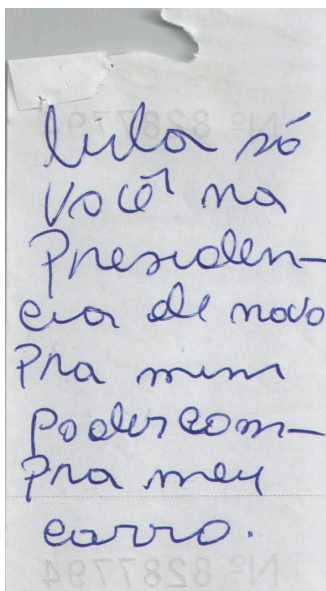 lula só
você na
Presiden-
cia de novo
Pra mim
poder com-
Pra meu
carro.
Nº 8287794